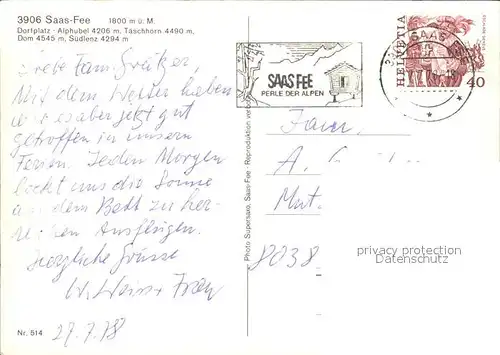 3906 Saas-Fee 1800 m ü. M.
Dorfplatz - Alphubel 4206 m, Täschhorn 4490 m,
Dom 4545 m, Südlenz 4294 m
Liebe Fam. Greutzer,
Mit dem Wetter haben
wir es aber jetzt gut
getroffen in unsern
Ferien. Jeden Morgen
lockt uns die Sonne
aus dem Bett zu her-
lichen Ausflügen.
Herzliche Grüsse
W. + Frau
Nr. 514
27.7.78
SAAS FEE
PERLE DER ALPEN
SAAS
HELVETIA
40
Photo Supersaxo, Saas-Fee - Reproduktion
Fam.
A.
Mut
8038
privacy protection
Datenschutz